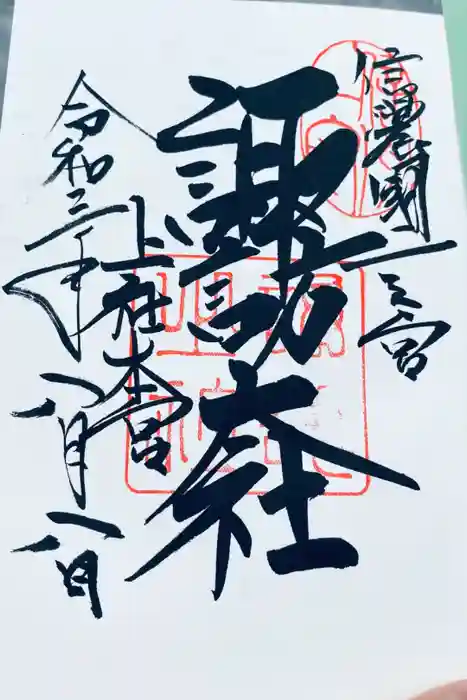 信濃國一之宮
諏訪大社
上社本宮
令和三年八月八日